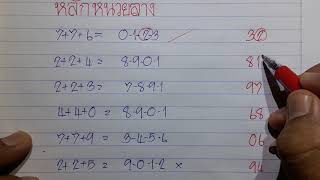 หลักหน่วยล่าง
7+7+6= 0-1-2-3 32
2+2+4= 8-9-0-1
2+2+3= 7-8-9-1 97
4+4+0= 8-9-0-1 68
7+7+9= 3-4-5-6 06
2+2+5= 9-0-1-2 × 94